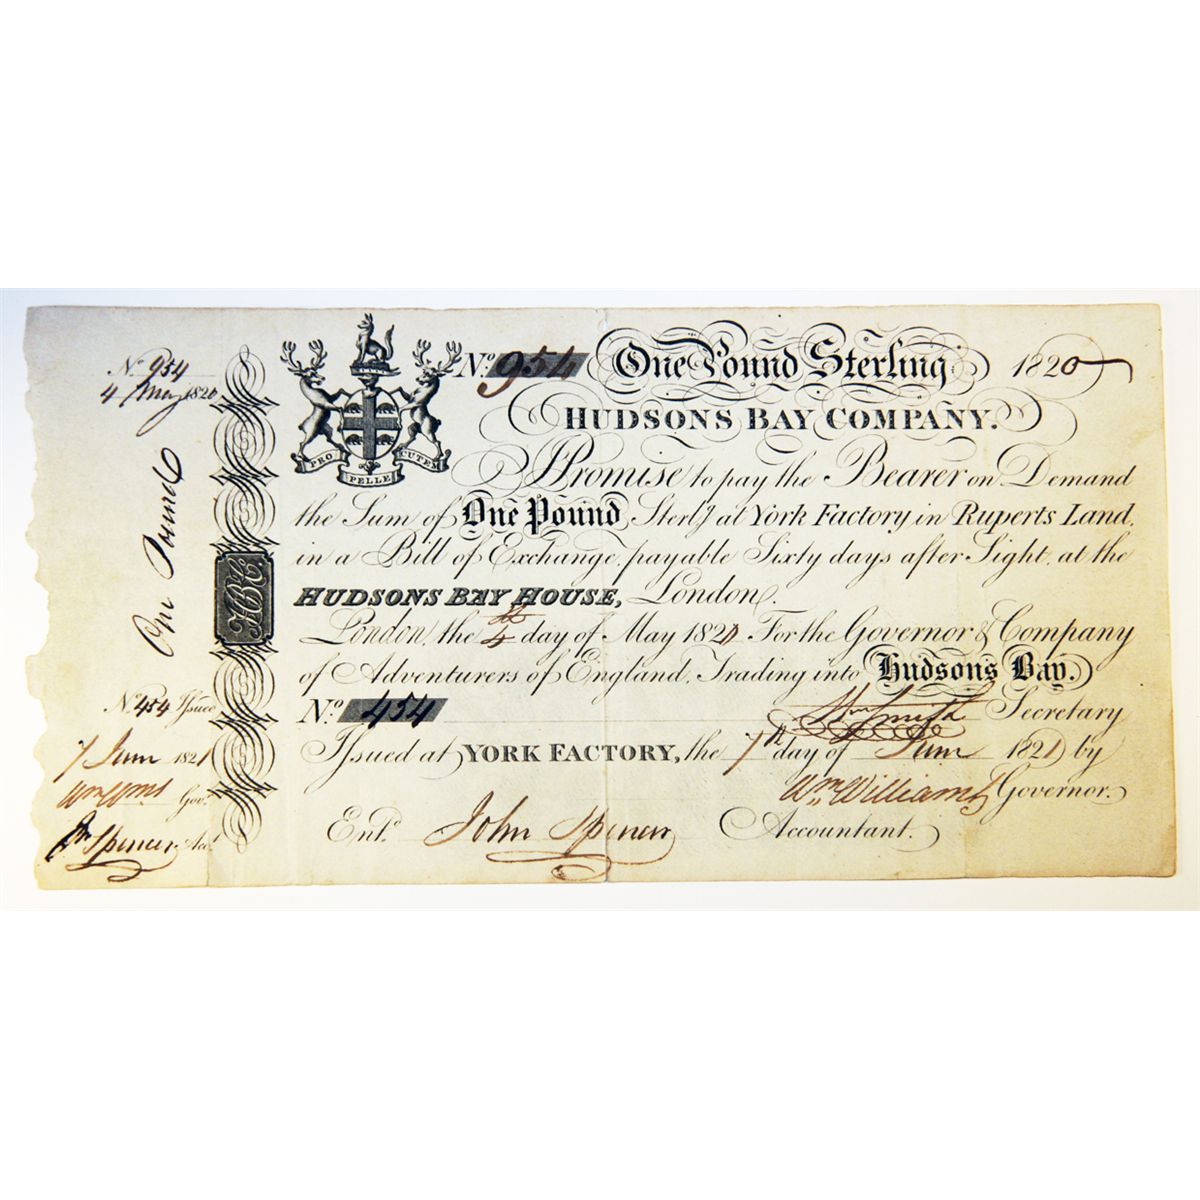 No. 954
4 May 1820
One Pound
HBC.
No. 454 Issued
7 June 1821
Wm Wms Gov.r
Jn Spencer Acct.
PRO PELLE CUTEM
No. 954 One Pound Sterling 1820
HUDSONS BAY COMPANY.
I Promise to pay the Bearer on Demand
the Sum of One Pound Sterlg at York Factory in Ruperts Land,
in a Bill of Exchange, payable Sixty days after Sight, at the
HUDSONS BAY HOUSE, London.
London, the 4th day of May 1820. For the Governor & Company
of Adventurers of England, Trading into Hudsons Bay.
No. 454 Wm Smith Secretary
Issued at YORK FACTORY, the 7th day of June 1821 by
Wm. Williams Governor.
Entd. John Spencer Accountant.